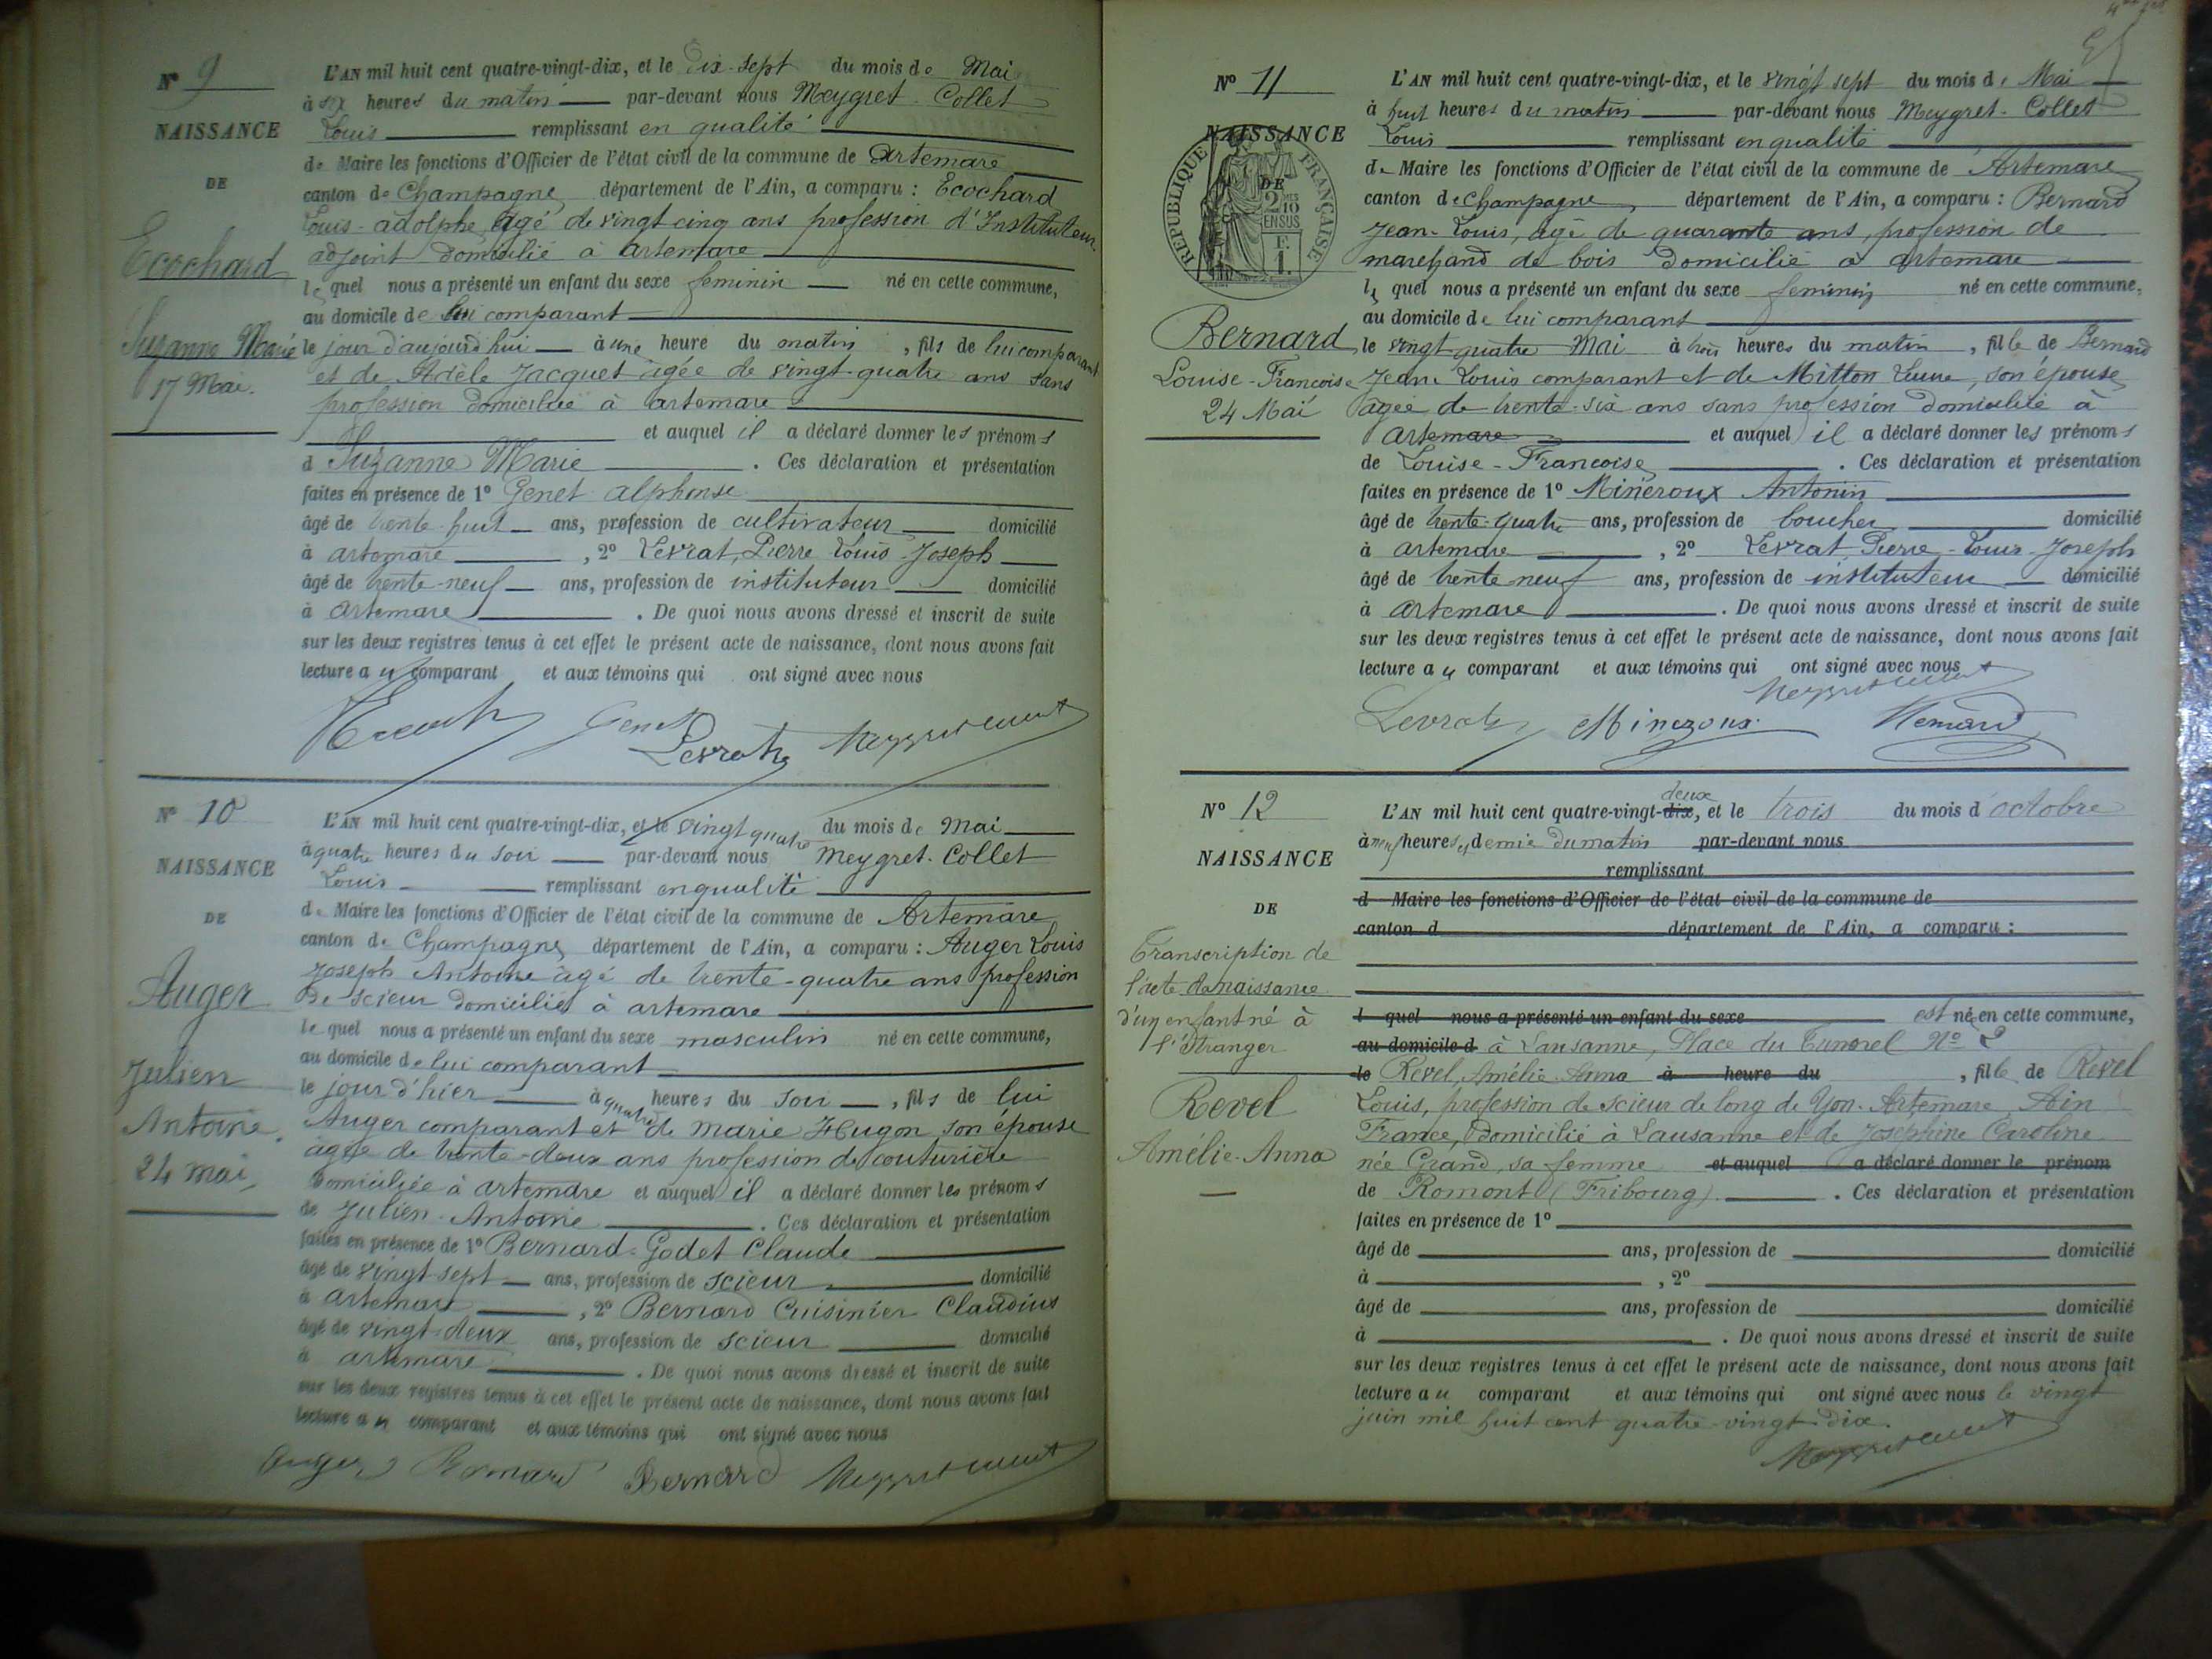 N° 9
NAISSANCE
DE
Ecochard
Suzanne Marie
17 Mai.
L'AN mil huit cent quatre-vingt-dix, et le dix-sept du mois de Mai
à six heures du matin par-devant nous Meygret-Collet
Louis remplissant en qualité
de Maire les fonctions d'Officier de l'état civil de la commune de Artemare
canton de Champagne département de l'Ain, a comparu : Ecochard
Louis-adolphe âgé de vingt cinq ans profession d'Instituteur
adjoint domicilié à artemare
lequel nous a présenté un enfant du sexe feminin né en cette commune,
au domicile de lui comparant
le jour d'aujourd'hui à une heure du matin, fils de lui comparant
et de Adèle Jacquet agée de vingt-quatre ans sans
profession domiciliée à artemare
et auquel il a déclaré donner les prénoms
d Suzanne Marie. Ces déclaration et présentation
faites en présence de 1° Genet alphonse
âgé de trente-huit ans, profession de cultivateur domicilié
à artemare, 2° Levrat, Pierre Louis Joseph
âgé de trente-neuf ans, profession de instituteur domicilié
à artemare. De quoi nous avons dressé et inscrit de suite
sur les deux registres tenus à cet effet le présent acte de naissance, dont nous avons fait
lecture au comparant et aux témoins qui ont signé avec nous
Genet
Levrat
N° 10
NAISSANCE
DE
Auger
Julien
Antoine.
24 mai
L'AN mil huit cent quatre-vingt-dix, et le vingt quatre du mois de Mai
à quatre heures du soir par-devant nous Meygret-Collet
Louis remplissant en qualité
de Maire les fonctions d'Officier de l'état civil de la commune de Artemare
canton de Champagne département de l'Ain, a comparu : Auger Louis
Joseph Antoine âgé de trente-quatre ans profession
de scieur domicilié à artemare
lequel nous a présenté un enfant du sexe masculin né en cette commune,
au domicile de lui comparant
le jour d'hier à quatre heures du soir, fils de lui
Auger comparant et de marie Hugon son épouse
âgée de trente-deux ans profession de couturière
domiciliée à artemare et auquel il a déclaré donner les prénoms
de Julien-Antoine. Ces déclaration et présentation
faites en présence de 1° Bernard-Godet Claude
âgé de vingt-sept ans, profession de scieur domicilié
à artemare, 2° Bernard Cuisinier Claudius
âgé de vingt-deux ans, profession de scieur domicilié
à artemare. De quoi nous avons dressé et inscrit de suite
sur les deux registres tenus à cet effet le présent acte de naissance, dont nous avons fait
lecture au comparant et aux témoins qui ont signé avec nous
Auger Bernard Bernard
N° 11
NAISSANCE
DE
RÉPUBLIQUE FRANÇAISE
2 MES
10
EN SUS
F.
1.
Bernard
Louise-Francoise
24 Mai
L'AN mil huit cent quatre-vingt-dix, et le vingt sept du mois de Mai
à huit heures du matin par-devant nous Meygret-Collet
Louis remplissant en qualité
de Maire les fonctions d'Officier de l'état civil de la commune de Artemare
canton de Champagne, département de l'Ain, a comparu : Bernard
Jean-Louis, âgé de quarante ans, profession de
marchand de bois domicilié à artemare
lequel nous a présenté un enfant du sexe feminin né en cette commune,
au domicile de lui comparant
le vingt quatre Mai à trois heures du matin, fille de Bernard
Jean-Louis comparant et de Mitton son épouse
agée de trente-six ans sans profession domiciliée à
Artemare et auquel il a déclaré donner les prénoms
de Louise-Francoise. Ces déclaration et présentation
faites en présence de 1° Mineroux Antonin
âgé de trente-quatre ans, profession de boucher domicilié
à artemare, 2° Levrat Pierre-Louis-Joseph
âgé de trente neuf ans, profession de instituteur domicilié
à artemare. De quoi nous avons dressé et inscrit de suite
sur les deux registres tenus à cet effet le présent acte de naissance, dont nous avons fait
lecture au comparant et aux témoins qui ont signé avec nous
Levrat Mineroux
N° 12
NAISSANCE
DE
Transcription de
l'acte de naissance
d'un enfant né à
l'Etranger
Revel
Amélie-Anna
L'AN mil huit cent quatre-vingt-dix, deux et le trois du mois d'octobre
à neuf heures et demie du matin par-devant nous
remplissant
d Maire les fonctions d'Officier de l'état civil de la commune de
canton d département de l'Ain, a comparu :
l quel nous a présenté un enfant du sexe est né en cette commune,
au domicile d à Lausanne, Place du Tunnel N° 2
le Revel, Amélie Anna à heure du, fille de Revel
Louis, profession de scieur de long de Yon-Artemare, Ain
France, domicilié à Lausanne et de Josephine Caroline
née Grand, sa femme et auquel a déclaré donner le prénom
de Romont (Fribourg). Ces déclaration et présentation
faites en présence de 1°
âgé de ans, profession de domicilié
à , 2°
âgé de ans, profession de domicilié
à . De quoi nous avons dressé et inscrit de suite
sur les deux registres tenus à cet effet le présent acte de naissance, dont nous avons fait
lecture au comparant et aux témoins qui ont signé avec nous le vingt
juin mil huit cent quatre-vingt-dix.